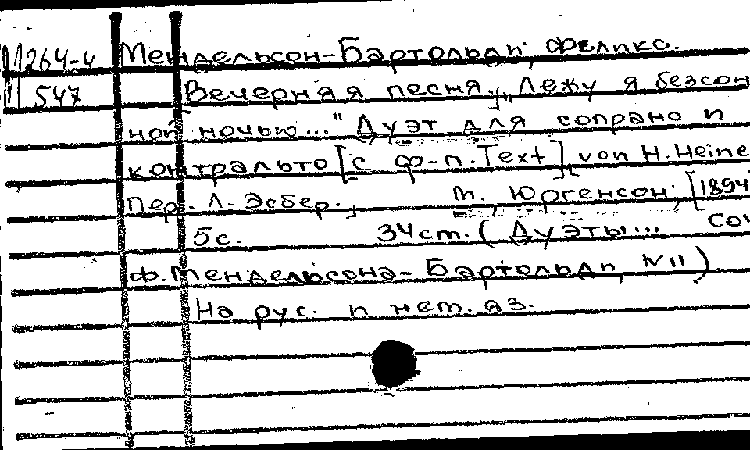 М264-ц Мендельсон-Бартольди, Феликс.
547 Вечерняя песня. „Лежу я безсон
ной ночью..." Дуэт для сопрано и
контральто [с ф-п. Text] von H. Heine
Пер. Л. Эсбер. М. Юргенсон, [1894
5с. 34ст. (Дуэты... соч
Ф. Мендельсона-Бартольди, №11)
На рус. и нем. яз.